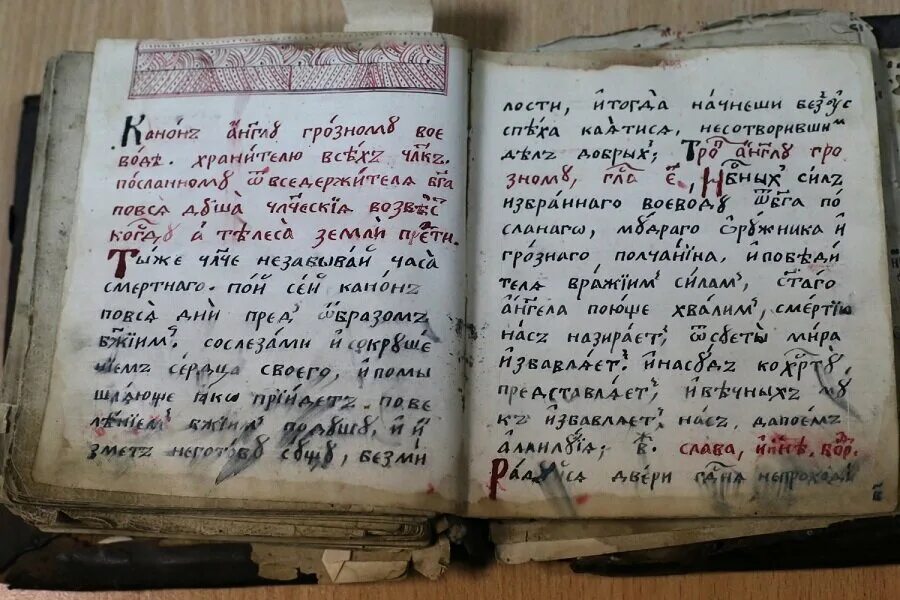 Канонъ а҆́нг҃лу гро́зномꙋ вое
во́дѣ. храни́телю всѣ́хъ чл҃къ.
по́сланномꙋ ѿ вседержи́телѧ бг҃а
повсѧ дꙋ́ша чл҃ческїѧ возвѣ́с
ко гдⷭ҇ꙋ а҆ тѣлеса̀ землѝ пре́ти.
Ты́же чл҃че незабыва́й часа̀
сме́ртнаго. по́й се́й кано́нъ
повсѧ̀ днѝ предъ ѡ҆́бразомъ
бж҃їимъ. сослеза́ми и҆ сокрꙋше́
нїемъ се́рдца своего, и҆ помы
шлѧ́юще ꙗ҆́кѡ прїи́детъ пове
лѣ́нїемъ бж҃їимъ подꙋшꙋ̀, и҆ и҆́
зметъ негото́вꙋ сꙋ́щꙋ, безми
лости, и҆тогда̀ на́чнеши безъꙋс
пѣ́ха ка́ѧтисѧ, несотворивши
дѣ́лъ до́брыхъ; Тро́п а҆́нг҃лꙋ гро́
зномꙋ, гла́ е҃, Нб҃ныхъ си́лъ
и҆збра́ннаго воево́дꙋ ѿбг҃а по́
сланагѡ, мꙋ́драго ѻ҆рꙋ́жника и҆
гро́знаго полча́нїна, и҆побѣди́
телѧ вра́жїимъ си́ламъ, ст҃а́го
а҆́нг҃ела пою́ще хва́лимъ, сме́ртїю
на́съ назира́етъ, ѿ сꙋеты̀ ми́ра
и҆збавлѧ́етъ. и҆насꙋ́дъ ко хрⷭ҇тꙋ̀
представлѧ́етъ, и҆вѣ́чныхъ мꙋ́
къ и҆збавлѧ́етъ на́съ, дапое́мъ
а҆ллилꙋ́їѧ; в҃. сла́ва, и҆ ны́нѣ, бо́гор.
Ра́дꙋйсѧ две́ри гдⷭ҇нѧ непроходи́